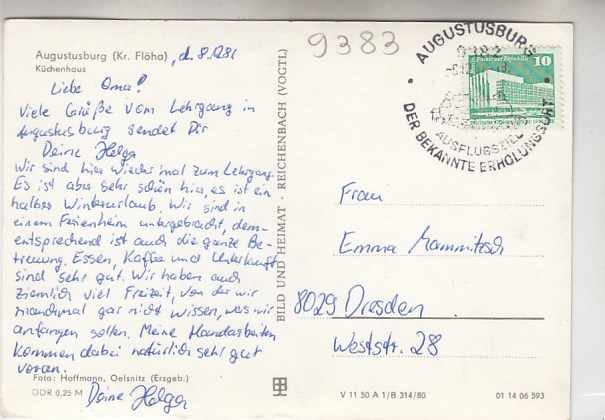 Augustusburg (Kr. Flöha), d. 8.12.81
Küchenhaus
Liebe Oma!
Viele Grüße vom Lehrgang in
Augustusburg sendet Dir
Deine Helga
Wir sind hier wieder mal zum Lehrgang.
Es ist aber sehr schön hier, es ist ein
halber Winterurlaub. Wir sind in
einem Ferienheim untergebracht, dem-
entsprechend ist auch die ganze Be-
treuung. Essen, Kaffee und Unterkunft
sind sehr gut. Wir haben auch
ziemlich viel Freizeit, von der wir
manchmal gar nicht wissen, was wir
anfangen sollen. Meine Handarbeiten
kommen dabei natürlich sehr gut
voran.
Deine Helga
Foto: Hoffmann, Oelsnitz (Erzgeb.)
DDR 0,25 M
BILD UND HEIMAT · REICHENBACH (VOGTL)
V 11 50 A 1/B 314/80
01 14 06 593
9383
AUGUSTUSBURG
9382
AUSFLUGSZIEL
DER BEKANNTE ERHOLUNGSORT
10
Frau
Emma Mammitzsch
8029 Dresden
Weststr. 28